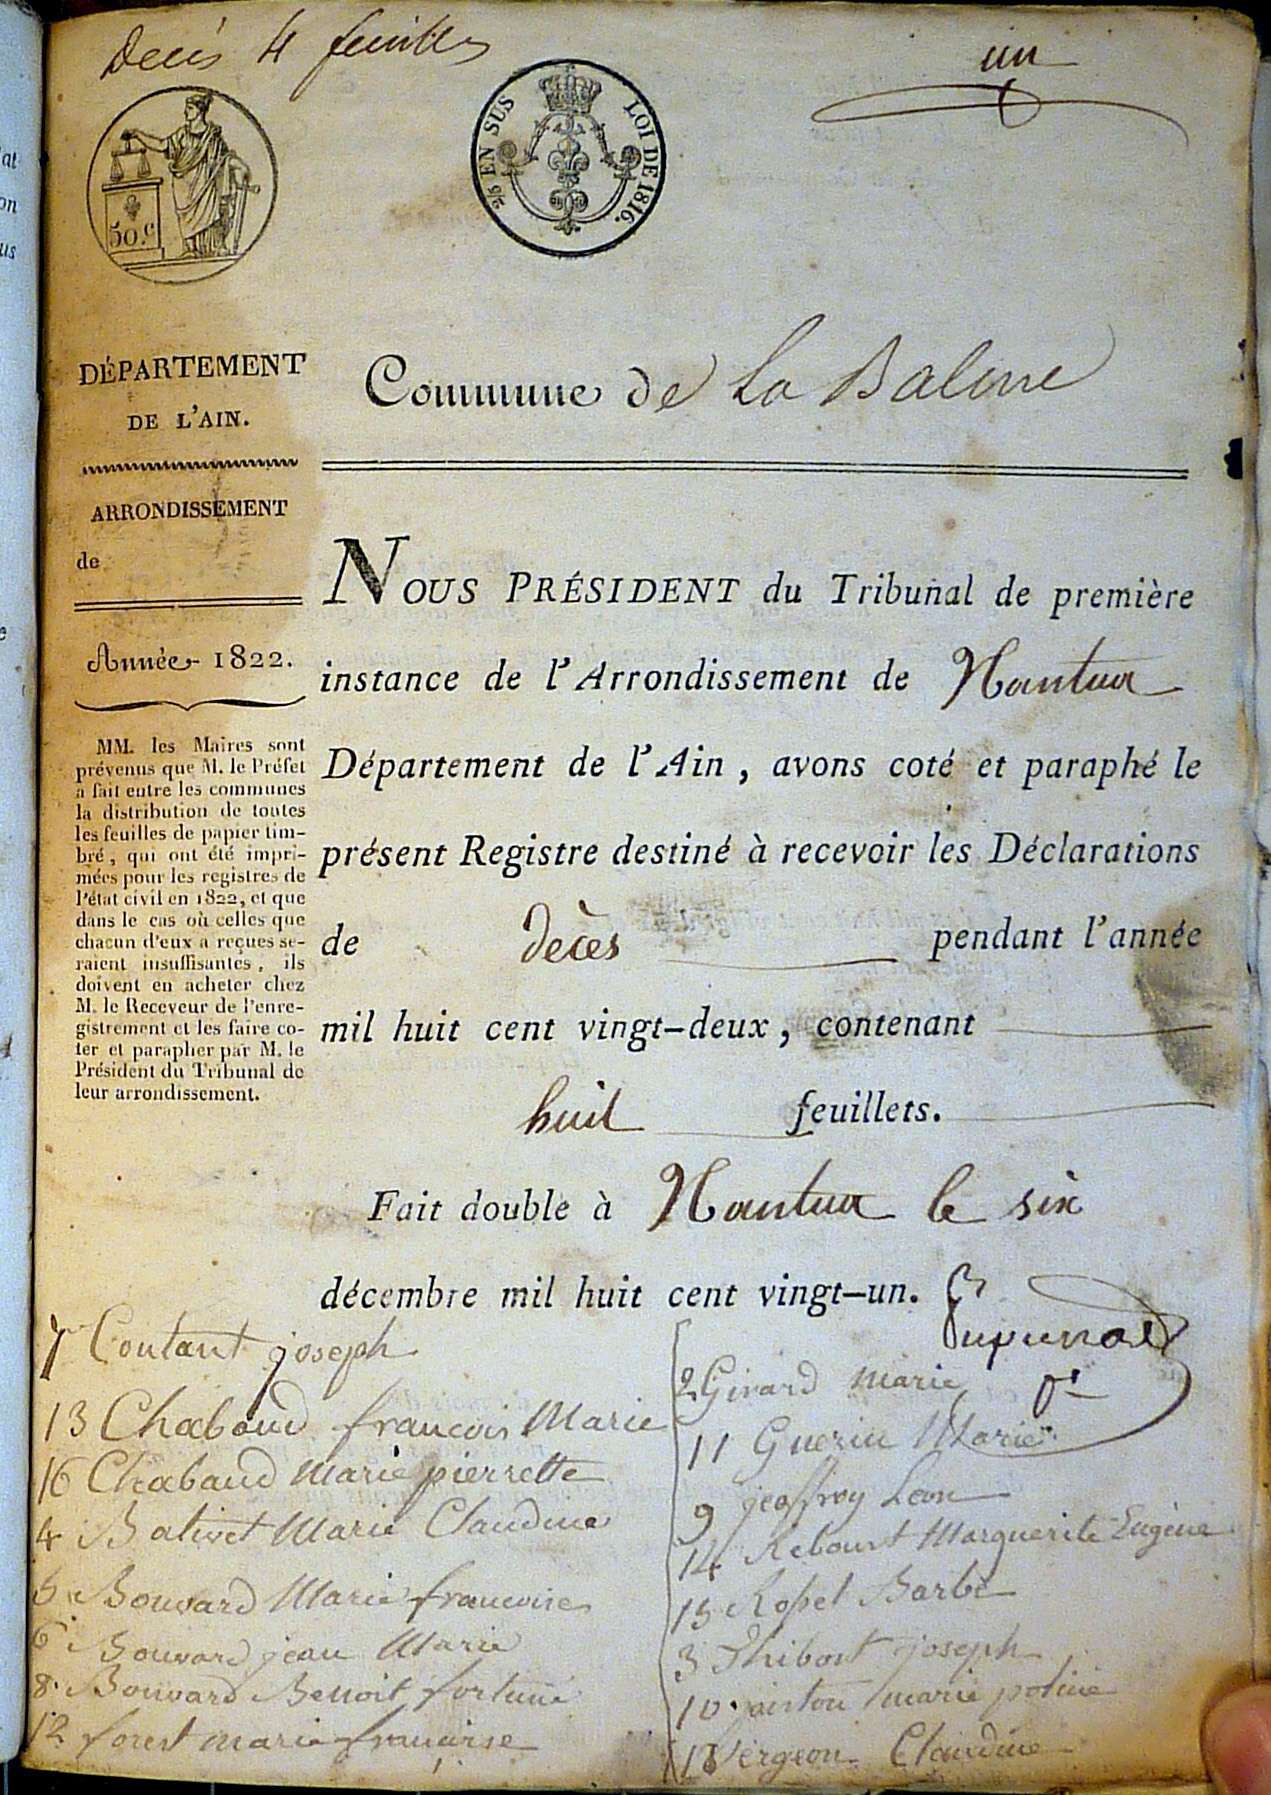 Decès 4 feuilles
un
50.c
2/5 EN SUS LOI DE 1816.
DÉPARTEMENT
DE L'AIN.
Commune de La Balme
ARRONDISSEMENT
de
Année 1822.
MM. les Maires sont
prévenus que M. le Préfet
a fait entre les communes
la distribution de toutes
les feuilles de papier tim-
bré, qui ont été impri-
mées pour les registres de
l'état civil en 1822, et que
dans le cas où celles que
chacun d'eux a reçues se-
raient insuffisantes, ils
doivent en acheter chez
M. le Receveur de l'enre-
gistrement et les faire co-
ter et parapher par M. le
Président du Tribunal de
leur arrondissement.
NOUS PRÉSIDENT du Tribunal de première
instance de l'Arrondissement de Nantua
Département de l'Ain, avons coté et paraphé le
présent Registre destiné à recevoir les Déclarations
de Décès pendant l'année
mil huit cent vingt-deux, contenant
huit feuillets.
Fait double à Nantua le six
décembre mil huit cent vingt-un.
7 Coutant joseph
13 Chabaud francois Marie
16 Chabaud Marie pierrette
4 Balivet Marie Claudine
5 Bouvard Marie francoise
6 Bouvard jean Marie
8. Bouvard Benoit fortuné
12 forest marie francoise
2 Girard marie
11 Guerin Marie
9 jeoffroy Leon
14 Marguerite Eugènie
15 Rosset Barbe
3 Thibost joseph
10. marie poline
Vergeon Claudine